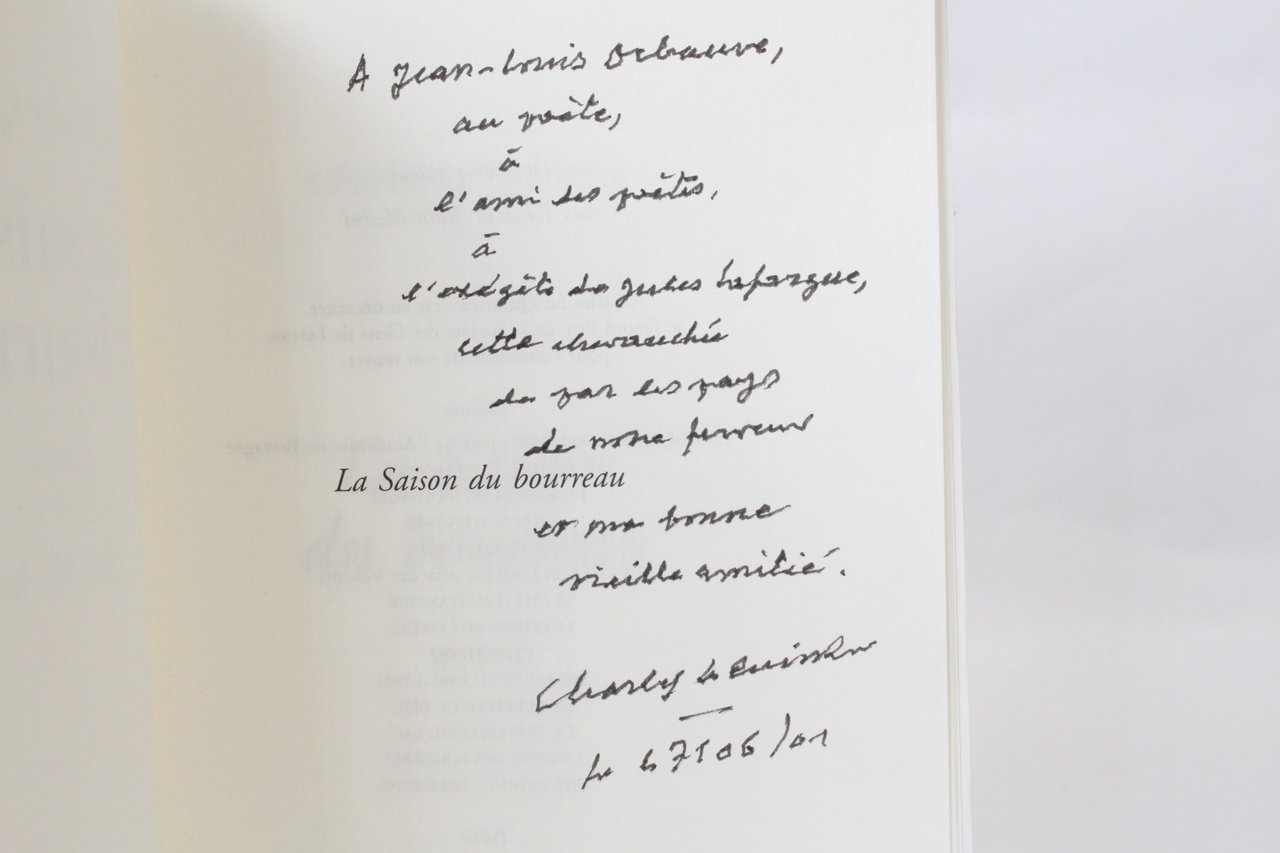 A Jean-Louis Debauve,
au poète,
à
l'ami des poètes,
à
l'exégète de Jules Laforgue,
cette chevauchée
de par les pays
de notre ferveur
La Saison du bourreau
et ma bonne
vieille amitié.
Charles Le Quintrec
le